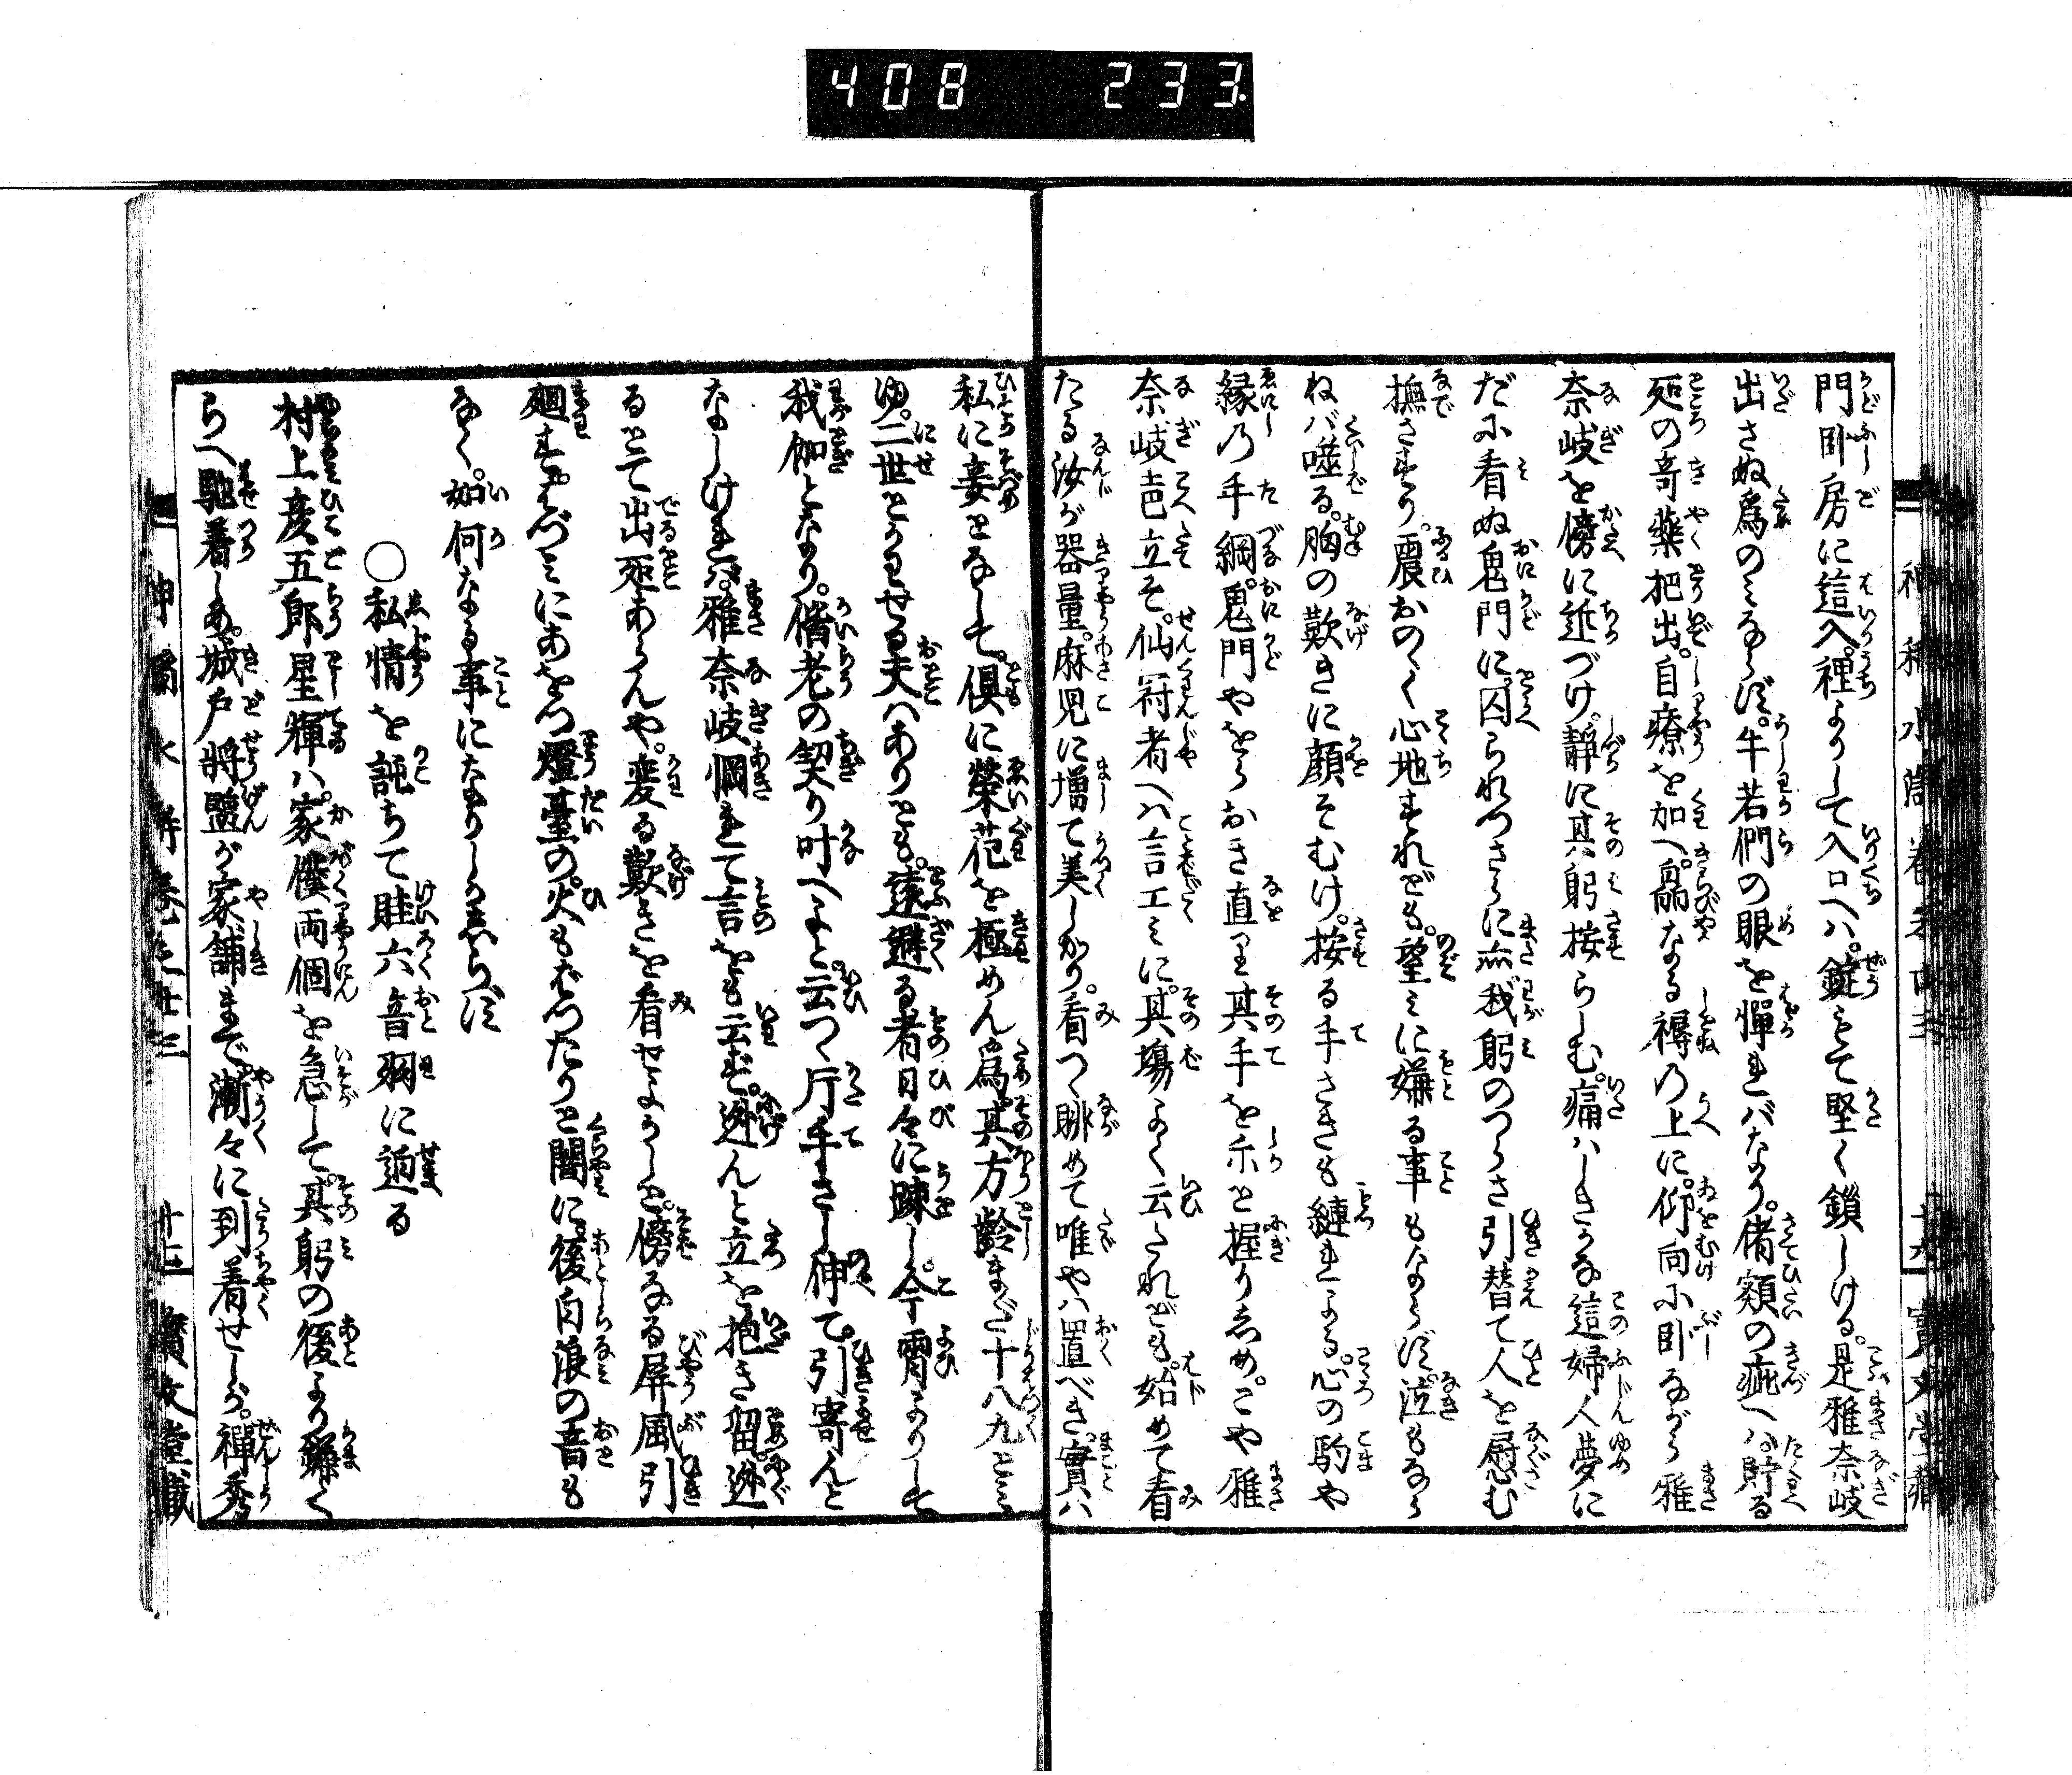 408 233
門卧房に這入。裡よりして入口へハ。錠もて堅く鎖しける。是雅奈岐
出さぬ為のミならず。牛若們の眼を憚れバなり。偖額の疵へハ。貯る
処の奇薬把出。自療を加へ。
なる褥乃上に。仰向に卧ながら雅
奈岐を傍に近づけ。静に其躬按らしむ。痛ハしきかな這婦人夢に
だに看ぬ鬼門に囚られつさらに
我躬のつらさ引替て人を慰む
撫さすり。震おのゝく心地すれども。望ミに嫌る事もならず。泣もなら
ねバ噬る。胸の歎きに顔そむけ。按る手さきも縺れよる。心の駒や
縁乃手綱。鬼門やをらおき直り其手を
と握りしめ。こや雅
奈岐
立そ。仙冠者へハ言工ミに。其塲よく云くれども。始めて看
たる汝が器量。麻児に増て美しかり。看つゝ眺めて唯やハ置べき。實ハ
私に妾となして。倶に榮花を極めん為。其方齢まだ十八九と
ゆ。二世とかよせる夫ハありとも。遠避る者日々に踈し。今霄よりして
我伽となり。偕老の契り叶へよと云つゝ片手さし伸て。引寄んと
なしけれバ。雅奈岐惘れて言をも云ず。迯んと立を抱き留。迯
るとて出処あらんや。変る歎きを看せよかしと。傍なる屏風引
廻すはづミにあをつ燈臺の。火もはつたりと闇に。後白浪の音も
なく。如何なる事になりしかしらず
○私情を託ちて眭六音羽に逅る
村上彦五郎星輝ハ。家僕両個を急して。其躬の後より鎌く
らへ馳着しめ。城戸將監が家舗まで。漸々に到着せしが。禅秀